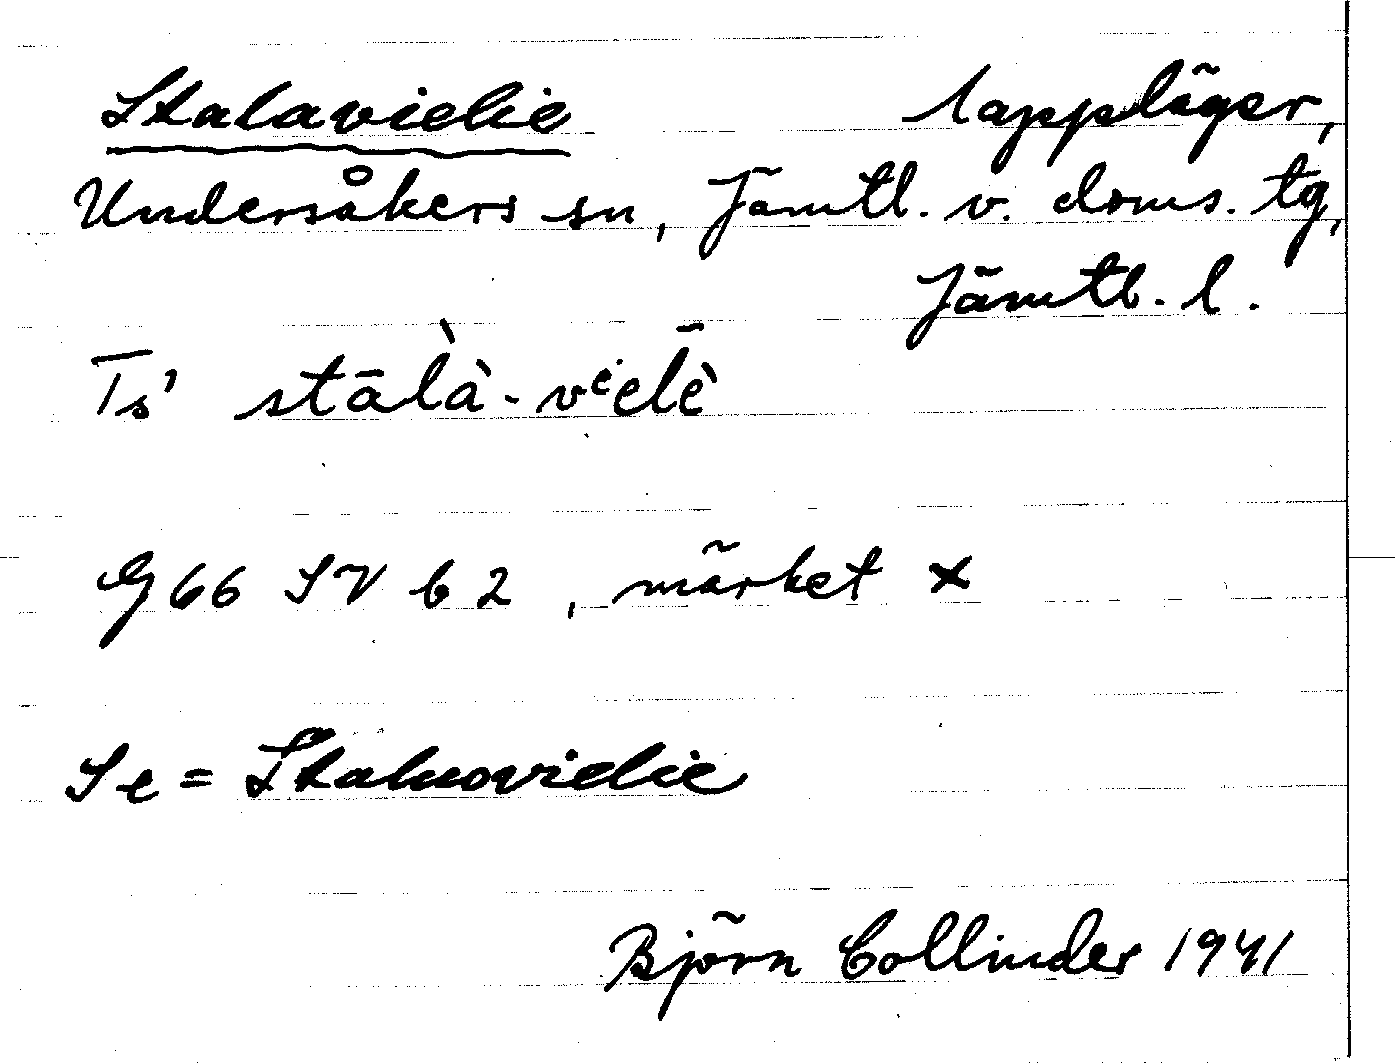 Stalavielie lappläger,
Undersåkers sn, Jämtl. v. doms. tg,
Jämtl. l.
Ts' stālà-vielḕ
G66 SV b 2, märket x
Se = Staluovielie
Björn Collinder 1941